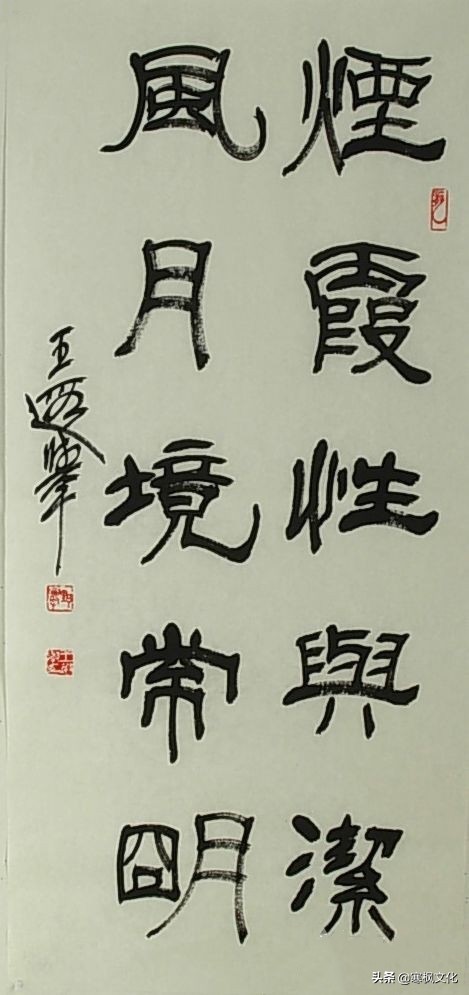 煙霞性與潔
風月境常明
王遐举
头条 @寒枫文化